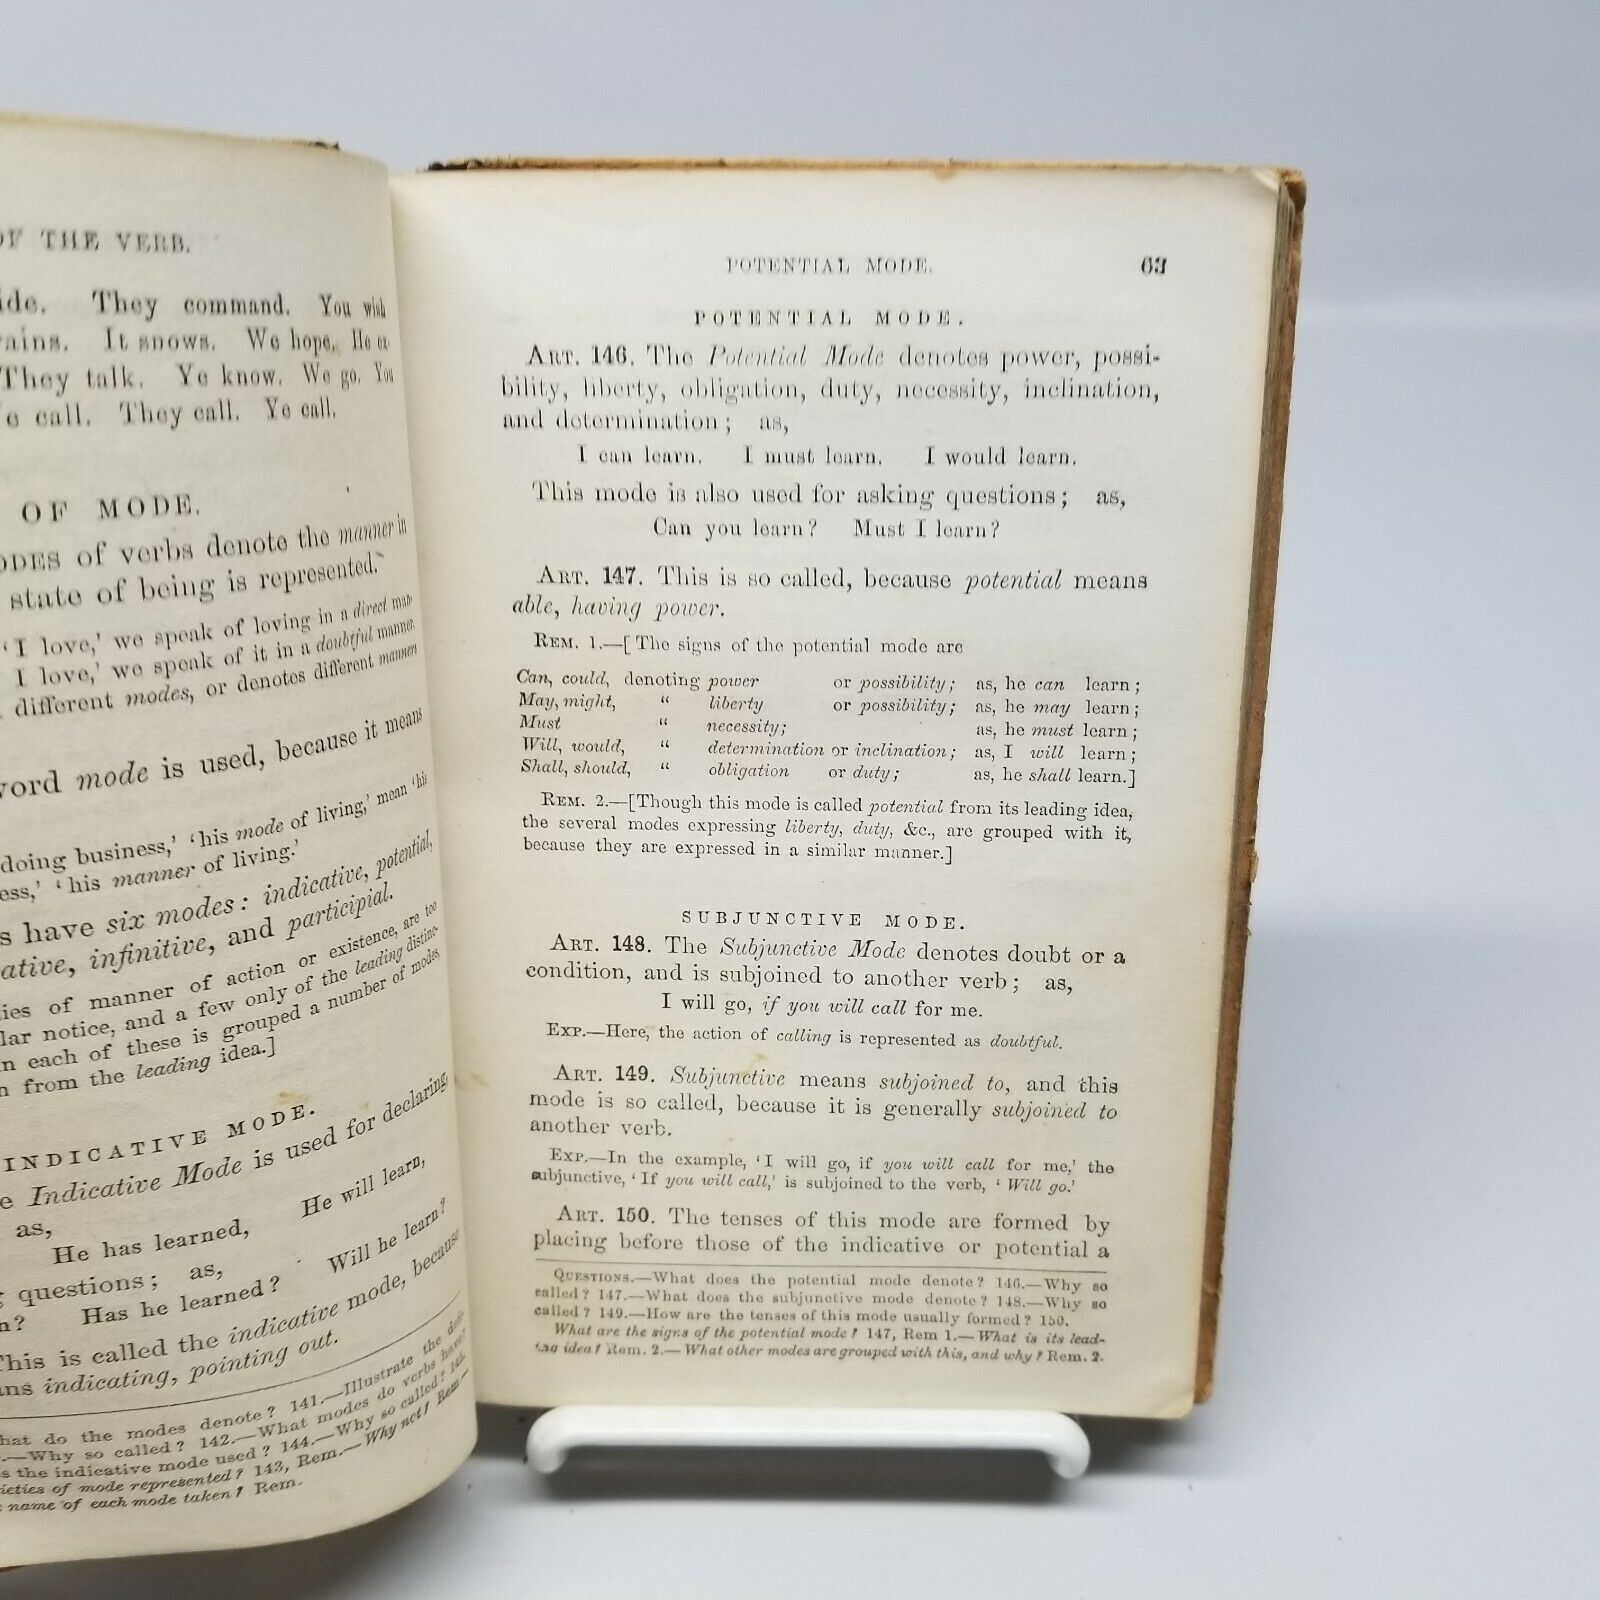 OF THE VERB.
They command. You wish
It snows. We hope. He ex-
They talk. Ye know. We go. You
call. They call. Ye call.
OF MODE.
of verbs denote the manner in
state of being is represented.
'I love,' we speak of loving in a direct man-
I love,' we speak of it in a doubtful manner.
different modes, or denotes different manners
word mode is used, because it means
doing business,' 'his mode of living,' mean 'his
'his manner of living.'
have six modes: indicative, potential,
infinitive, and participial.
of manner of action or existence, are too
notice, and a few only of the leading distinc-
in each of these is grouped a number of modes,
from the leading idea.]
INDICATIVE MODE.
Indicative Mode is used for declaring;
as,
He has learned, He will learn,
questions; as,
Has he learned? Will he learn?
This is called the indicative mode, because
indicating, pointing out.
do the modes denote? 141.—Illustrate the
—Why so called? 142.—What modes do verbs have?
the indicative mode used? 144.—Why so called? 145.
of mode represented? 143, Rem.—Why not? Rem.—
name of each mode taken? Rem.
POTENTIAL MODE. 63
POTENTIAL MODE.
ART. 146. The Potential Mode denotes power, possi-
bility, liberty, obligation, duty, necessity, inclination,
and determination; as,
I can learn. I must learn. I would learn.
This mode is also used for asking questions; as,
Can you learn? Must I learn?
ART. 147. This is so called, because potential means
able, having power.
REM. 1.—[The signs of the potential mode are
Can, could, denoting power or possibility; as, he can learn;
May, might, " liberty or possibility; as, he may learn;
Must " necessity; as, he must learn;
Will, would, " determination or inclination; as, I will learn;
Shall, should, " obligation or duty; as, he shall learn.]
REM. 2.—[Though this mode is called potential from its leading idea,
the several modes expressing liberty, duty, &c., are grouped with it,
because they are expressed in a similar manner.]
SUBJUNCTIVE MODE.
ART. 148. The Subjunctive Mode denotes doubt or a
condition, and is subjoined to another verb; as,
I will go, if you will call for me.
EXP.—Here, the action of calling is represented as doubtful.
ART. 149. Subjunctive means subjoined to, and this
mode is so called, because it is generally subjoined to
another verb.
EXP.—In the example, 'I will go, if you will call for me,' the
subjunctive, 'If you will call,' is subjoined to the verb, 'Will go.'
ART. 150. The tenses of this mode are formed by
placing before those of the indicative or potential a
QUESTIONS.—What does the potential mode denote? 146.—Why so
called? 147.—What does the subjunctive mode denote? 148.—Why so
called? 149.—How are the tenses of this mode usually formed? 150.
What are the signs of the potential mode? 147, Rem 1.—What is its lead-
ing idea? Rem. 2.—What other modes are grouped with this, and why? Rem. 2.